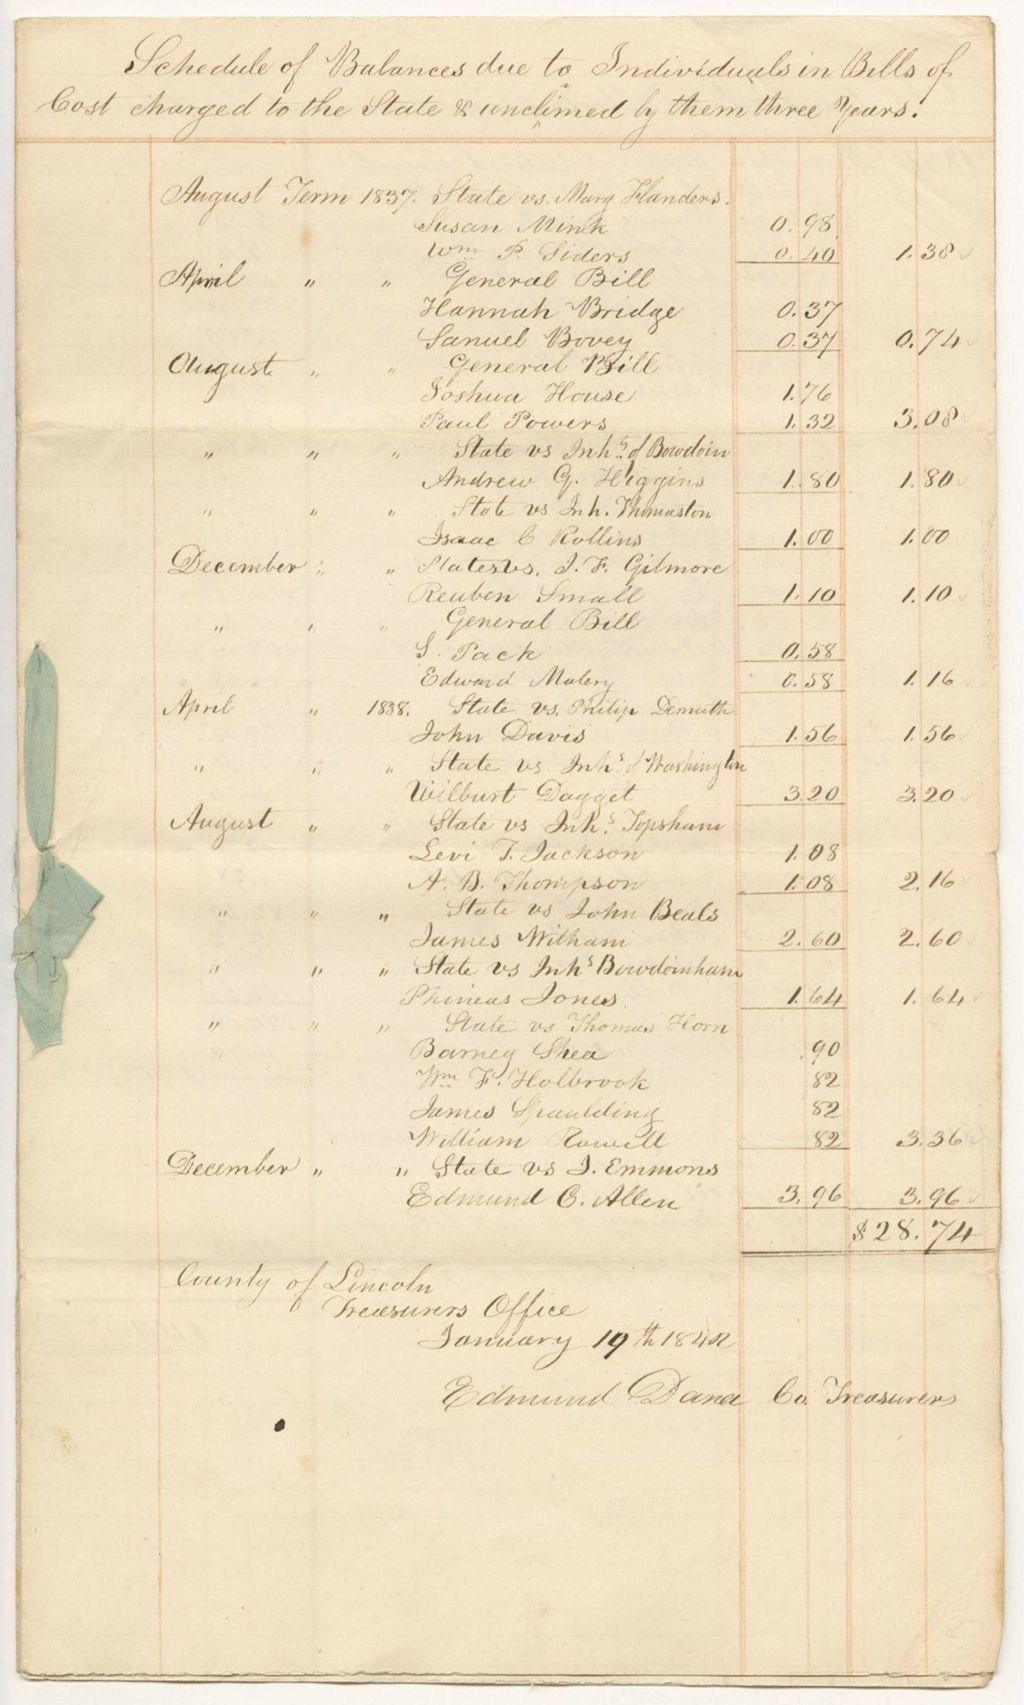 Schedule of Balances due to Individuals in Bills of
Cost charged to the State & unclimed by them three Years.
August Term 1837. State vs. Mary Flanders.
Susan Mink 0.98
Wm P. Siders 0.40 1.38
April " " General Bill
Hannah Bridge 0.37
Samuel Bovey 0.37 0.74
August " " General Bill
Joshua House 1.76
Paul Powers 1.32 3.08
" " " State vs Inhs of Bowdoin
Andrew G. Higgins 1.80 1.80
" " " State vs Inh. Thomaston
Isaac C Rollins 1.00 1.00
December " " State vs. J. F. Gilmore
Reuben Small 1.10 1.10
" " " General Bill
S. Pack 0.58
Edward 0.58 1.16
April " 1838. State vs. Philip Demuth
John Davis 1.56 1.56
" " " State vs. Inhs of Washington
Wilburt Dagget 3.20 3.20
August " " State vs Inhs Topsham
Levi T. Jackson 1.08
A. B. Thompson 1.08 2.16
" " " State vs John Beals
James Witham 2.60 2.60
" " " State vs Inhs Bowdoinham
Phineas Jones 1.64 1.64
" " " State vs Thomas Horn
Barney Shea .90
Wm F. Holbrook 82
James Spaulding 82
William Rowell 82 3.36
December " " State vs J. Emmons
Edmund C. Allen 3.96 3.96
$28.74
County of Lincoln
Treasurers Office
January 19th 1842
Edmund Dana Co. Treasurers